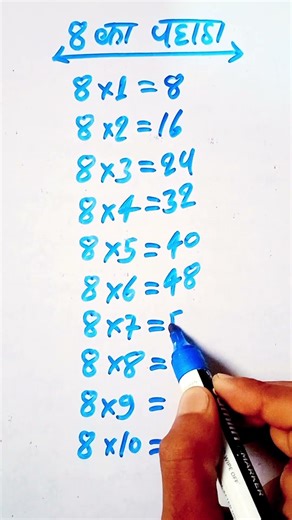 8 का पहाड़ा
8×1=8
8×2=16
8×3=24
8×4=32
8×5=40
8×6=48
8×7=5
8×8=
8×9=
8×10=
MARKER